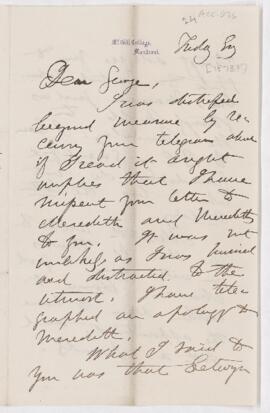 McGill College,
Montreal.
24 ACC-876
Friday Evg
[1873?]
Dear George,
I was distressed
beyond measure by re-
ceiving your telegram which
if I read it aright
implies that I have
missent your letter to
Meredith and Meredith's
to you. It was not
unlikely as I was hurried
and distracted to the
utmost. I have tele-
graphed an apology to
Meredith.
What I said to
you was that Selwyn